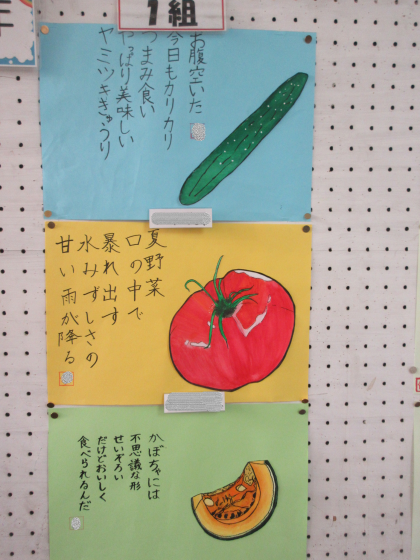 1組
お腹空いた
今日もカリカリ
つまみ食い
やっぱり美味しい
ヤミツキきゅうり
夏野菜
口の中で
暴れ出す
水みずしさの
甘い雨が降る
かぼちゃには
不思議な形
せいぞろい
だけどおいしく
食べられるんだ